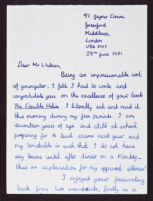 Greenford
Middlesex
London
29th June 1981
Dear Mr Watson,
Being an impressionable sort
of youngster, I felt I had to write and
congratulate you on the excellence of your book
The Double Helix. I literally sat and read it
this morning during my free periods. I am
seventeen years of age and still at school
preparing for A level exams next year and
my timetable is such that I do not have
any lessons until after dinner on a Monday -
thus an explanation for my apparent idleness!
I enjoyed your fascinating
book from two viewpoints; firstly as a